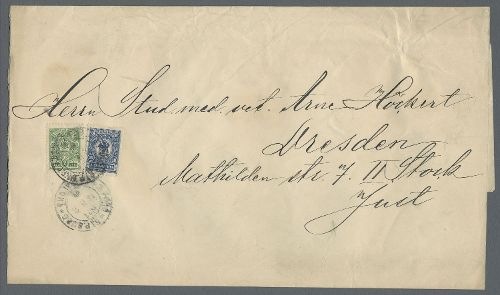 Herrn Stud. med. vet. Arne Höckert
Dresden
Mathilden str. 7. II Stock
Just